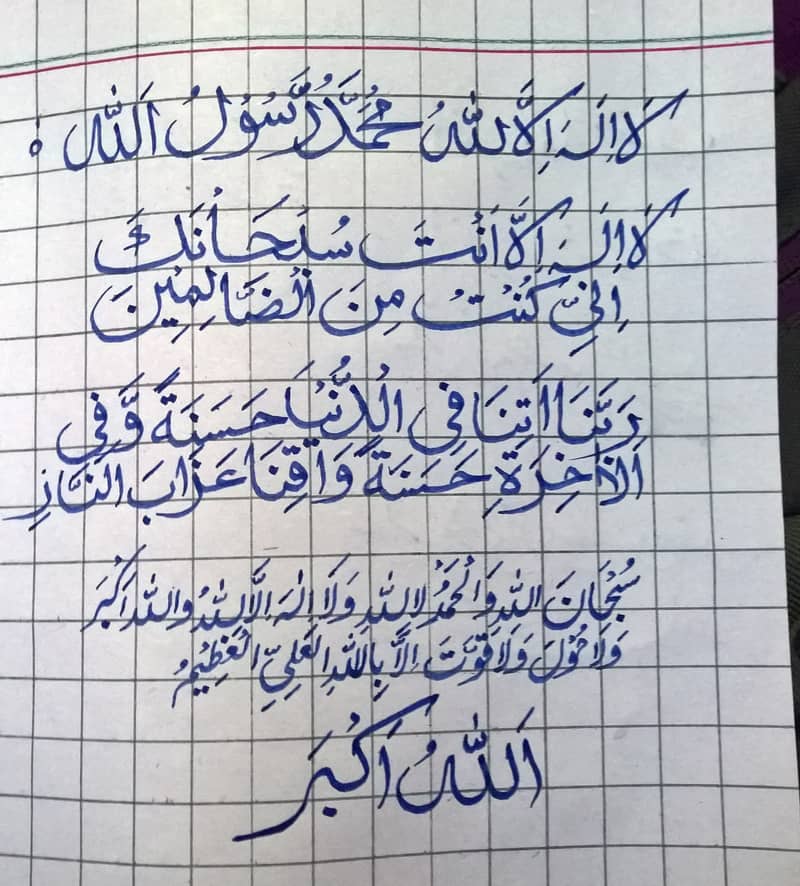 لَا اِلَہَ اِلَّا اللہُ مُحَمَّدٌ رَّسُوْلُ اَللہ ۰
لَا اِلَہَ اِلَّا اَنْتَ سُبْحَانَكَ
اِنِّي كُنْتُ مِنَ الْضَّالِمِيْنَ
رَبَّنَا اَتِنَا فِي الْدُّنْيَا حَسَنَةً وَّفِي
الْاَخِرَةِ حَسَنَةً وَاقِنَا عَزَابَ النَّارِ
سُبْحَانَ اللہِ وَالْحَمْدُ لِلہِ وَلَا اِلٰہَ اِلَّا اللہُ واللہُ اَكْبَرَ
وَلَا حَوْلَ وَلَا قُوَّتَ اِلَّا بِاللہِ الْعَلِيِّ الْعَظِيْمُ
اَللہُ اَكْبَرَ